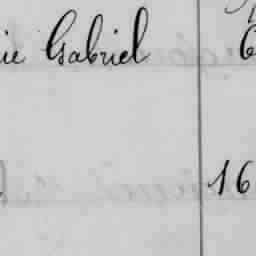 ie Gabriel 6
16